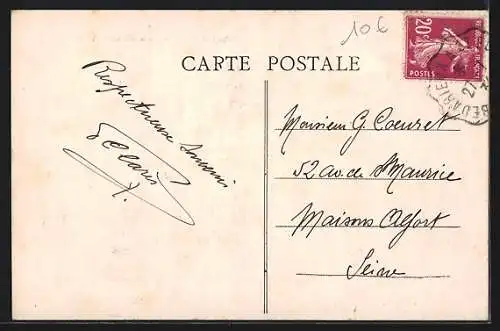 10€
CARTE POSTALE
20c
POSTES
BEDARIE
27
Respectueux Souvenir
Monsieur G. Coeuret
52 av. de St Maurice
Maisons Alfort
Seine